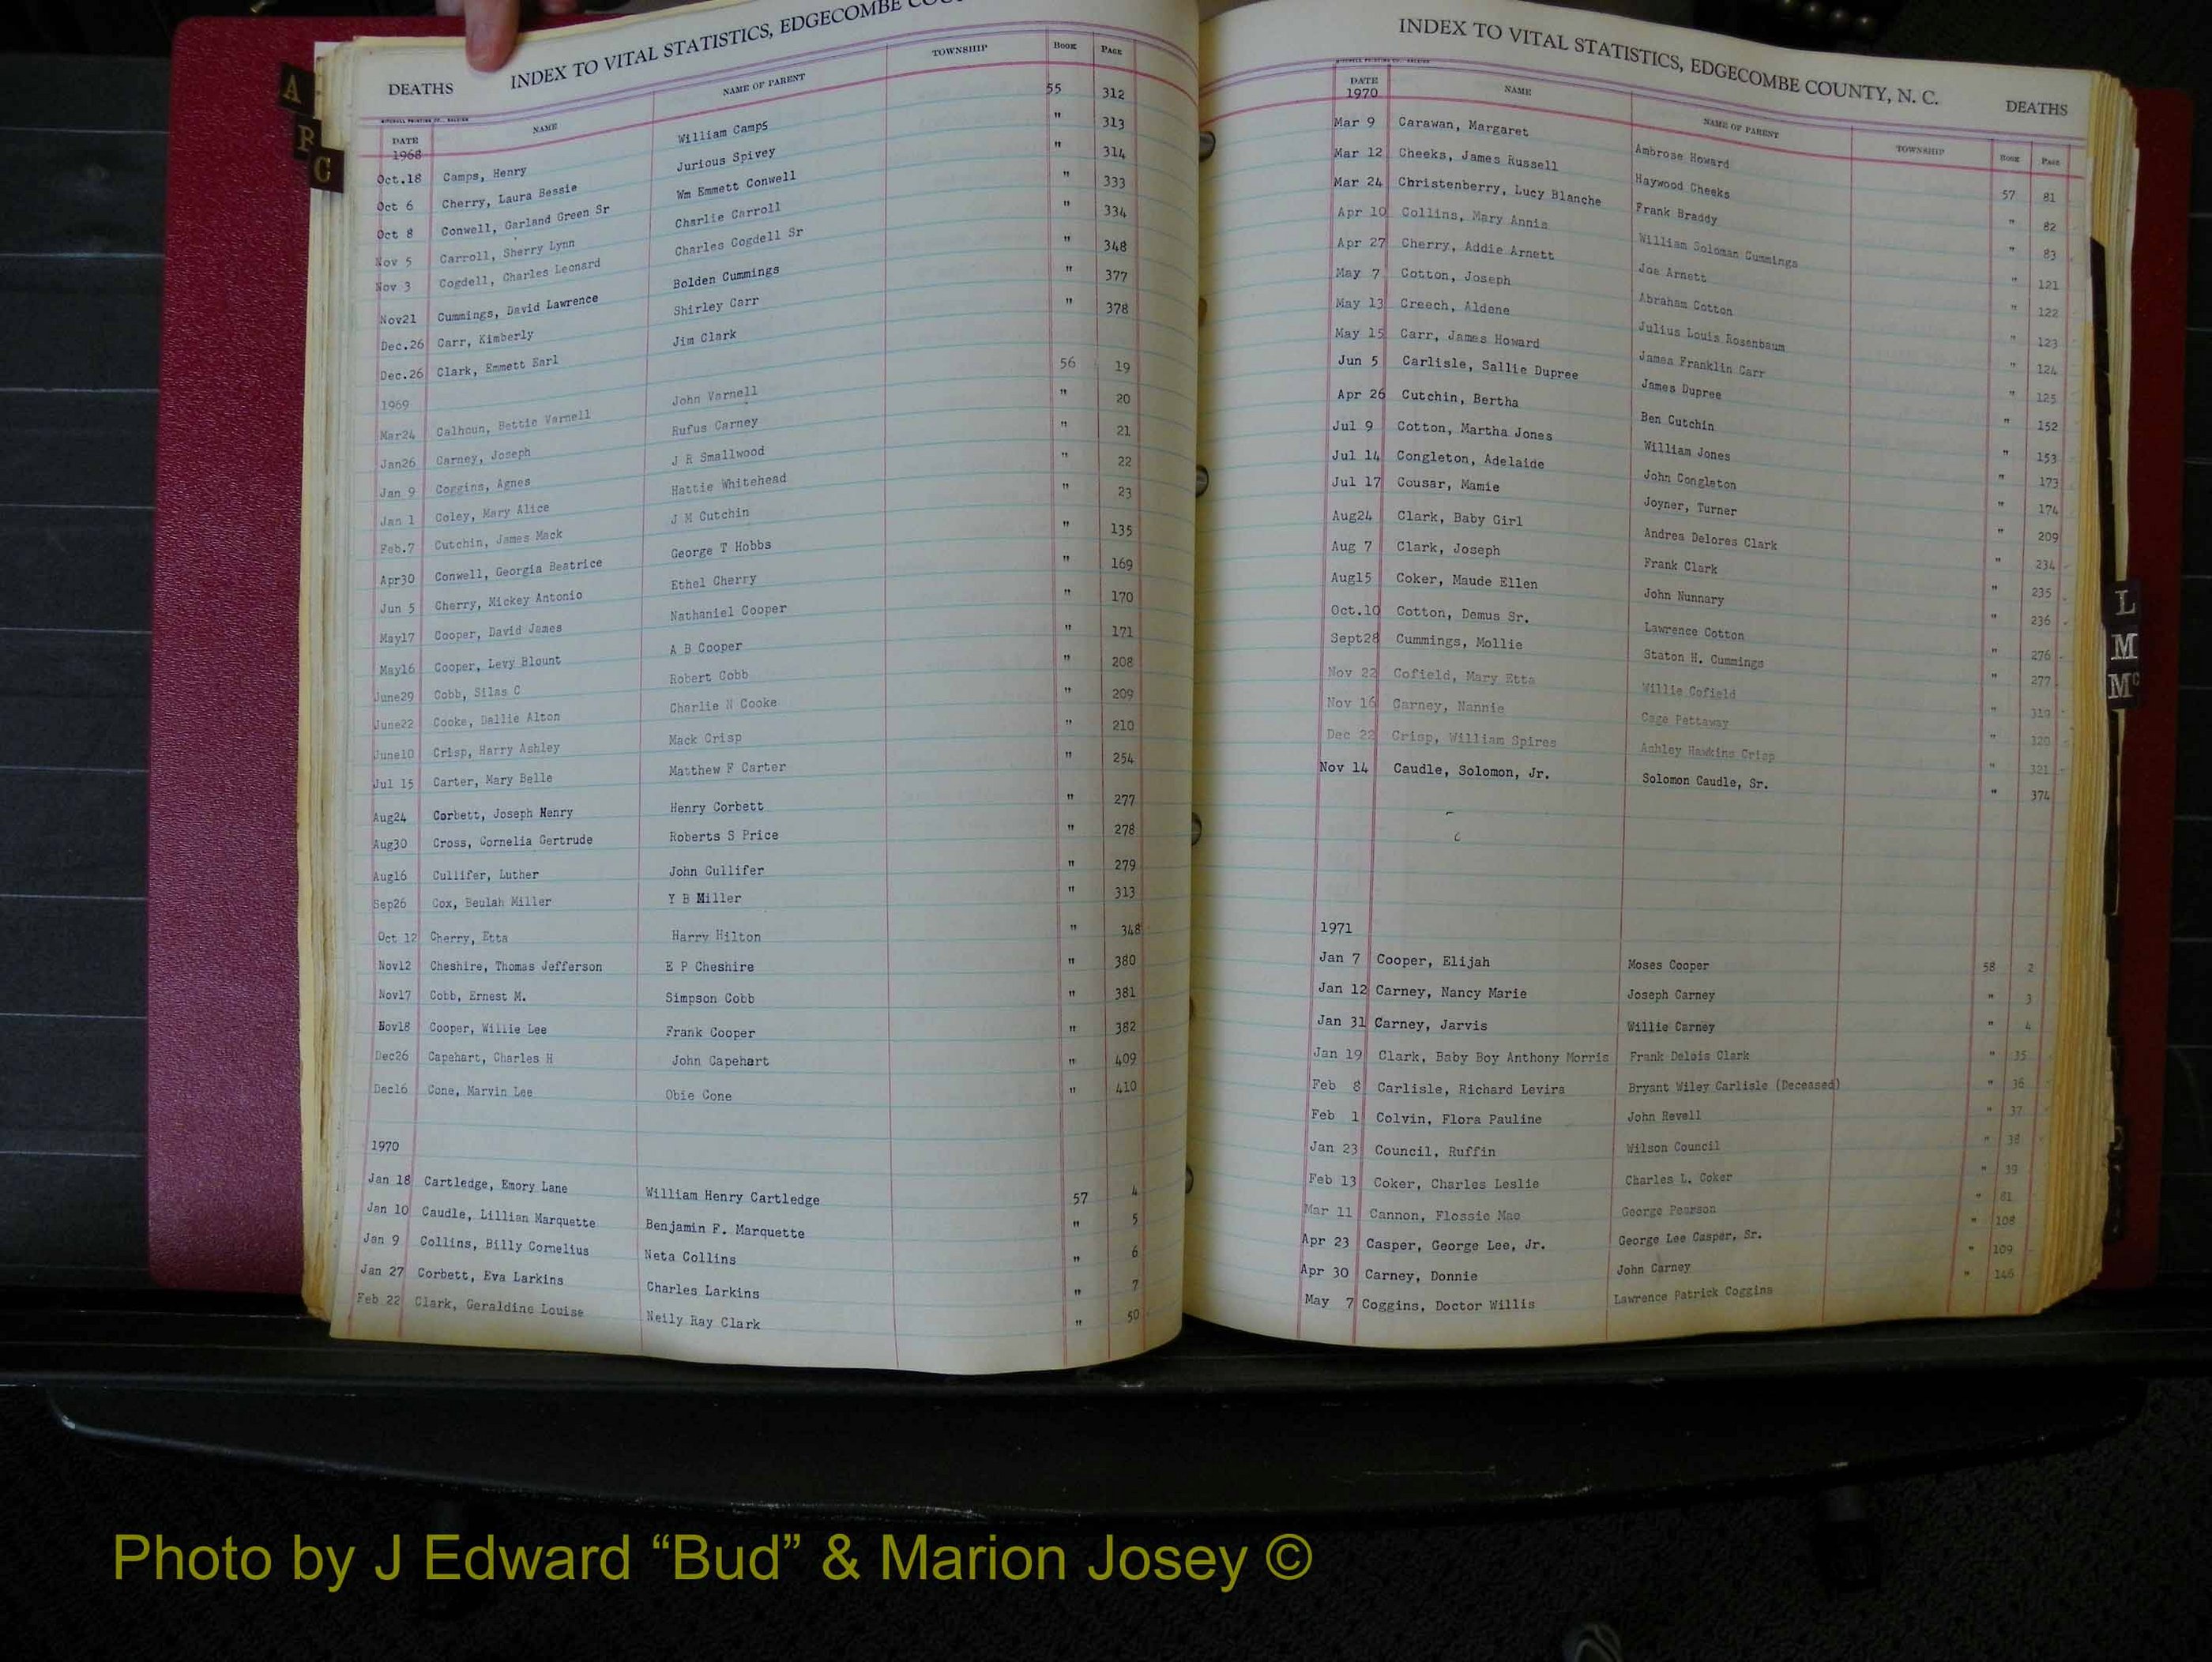 INDEX TO VITAL STATISTICS, EDGECOMBE
DEATHS
MITCHELL PRINTING CO., RALEIGH
DATE NAME NAME OF PARENT TOWNSHIP BOOK PAGE
1968
Oct.18 Camps, Henry William Camps 55 312
Oct 6 Cherry, Laura Bessie Jurious Spivey " 313
Oct 8 Conwell, Garland Green Sr Wm Emmett Conwell " 314
Nov 5 Carroll, Sherry Lynn Charlie Carroll " 333
Nov 3 Cogdell, Charles Leonard Charles Cogdell Sr " 334
Nov21 Cummings, David Lawrence Bolden Cummings " 348
Dec.26 Carr, Kimberly Shirley Carr " 377
Dec.26 Clark, Emmett Earl Jim Clark " 378
1969
Mar24 Calhoun, Bettie Varnell John Varnell 56 19
Jan26 Carney, Joseph Rufus Carney " 20
Jan 9 Coggins, Agnes J R Smallwood " 21
Jan 1 Coley, Mary Alice Hattie Whitehead " 22
Feb.7 Cutchin, James Mack J M Cutchin " 23
Apr30 Conwell, Georgia Beatrice George T Hobbs " 135
Jun 5 Cherry, Mickey Antonio Ethel Cherry " 169
May17 Cooper, David James Nathaniel Cooper " 170
May16 Cooper, Levy Blount A B Cooper " 171
June29 Cobb, Silas C Robert Cobb " 208
June22 Cooke, Dallie Alton Charlie N Cooke " 209
June10 Crisp, Harry Ashley Mack Crisp " 210
Jul 15 Carter, Mary Belle Matthew F Carter " 254
Aug24 Corbett, Joseph Henry Henry Corbett " 277
Aug30 Cross, Cornelia Gertrude Roberts S Price " 278
Aug16 Cullifer, Luther John Cullifer " 279
Sep26 Cox, Beulah Miller Y B Miller " 313
Oct 12 Cherry, Etta Harry Hilton " 348
Nov12 Cheshire, Thomas Jefferson E P Cheshire " 380
Nov17 Cobb, Ernest M. Simpson Cobb " 381
Nov18 Cooper, Willie Lee Frank Cooper " 382
Dec26 Capehart, Charles H John Capehart " 409
Dec16 Cone, Marvin Lee Obie Cone " 410
1970
Jan 18 Cartledge, Emory Lane William Henry Cartledge 57 4
Jan 10 Caudle, Lillian Marquette Benjamin F. Marquette " 5
Jan 9 Collins, Billy Cornelius Neta Collins " 6
Jan 27 Corbett, Eva Larkins Charles Larkins " 7
Feb 22 Clark, Geraldine Louise Neily Ray Clark " 50
INDEX TO VITAL STATISTICS, EDGECOMBE COUNTY, N. C.
DEATHS
MITCHELL PRINTING CO., RALEIGH
DATE NAME NAME OF PARENT TOWNSHIP BOOK PAGE
1970
Mar 9 Carawan, Margaret Ambrose Howard 57 81
Mar 12 Cheeks, James Russell Haywood Cheeks " 82
Mar 24 Christenberry, Lucy Blanche Frank Braddy " 83
Apr 10 Collins, Mary Annis William Soloman Cummings " 121
Apr 27 Cherry, Addie Arnett Joe Arnett " 122
May 7 Cotton, Joseph Abraham Cotton " 123
May 13 Creech, Aldene Julius Louis Rosenbaum " 124
May 15 Carr, James Howard James Franklin Carr " 125
Jun 5 Carlisle, Sallie Dupree James Dupree " 152
Apr 26 Cutchin, Bertha Ben Cutchin " 153
Jul 9 Cotton, Martha Jones William Jones " 173
Jul 14 Congleton, Adelaide John Congleton " 174
Jul 17 Cousar, Mamie Joyner, Turner " 209
Aug24 Clark, Baby Girl Andrea Delores Clark " 234
Aug 7 Clark, Joseph Frank Clark " 235
Aug15 Coker, Maude Ellen John Nunnary " 236
Oct.10 Cotton, Demus Sr. Lawrence Cotton " 276
Sept28 Cummings, Mollie Staton H. Cummings " 277
Nov 22 Cofield, Mary Etta Willie Cofield " 319
Nov 16 Carney, Nannie Cage Pettaway " 320
Dec 22 Crisp, William Spires Ashley Hawkins Crisp " 321
Nov 14 Caudle, Solomon, Jr. Solomon Caudle, Sr. " 374
1971
Jan 7 Cooper, Elijah Moses Cooper 58 2
Jan 12 Carney, Nancy Marie Joseph Carney " 3
Jan 31 Carney, Jarvis Willie Carney " 4
Jan 19 Clark, Baby Boy Anthony Morris Frank Delois Clark " 35
Feb 8 Carlisle, Richard Levira Bryant Wiley Carlisle (Deceased) " 36
Feb 1 Colvin, Flora Pauline John Revell " 37
Jan 23 Council, Ruffin Wilson Council " 38
Feb 13 Coker, Charles Leslie Charles L. Coker " 39
Mar 11 Cannon, Flossie Mae George Pearson " 81
Apr 23 Casper, George Lee, Jr. George Lee Casper, Sr. " 108
Apr 30 Carney, Donnie John Carney " 109
May 7 Coggins, Doctor Willis Lawrence Patrick Coggins " 146
A
B
C
L
M
Mc
Photo by J Edward “Bud” & Marion Josey ©